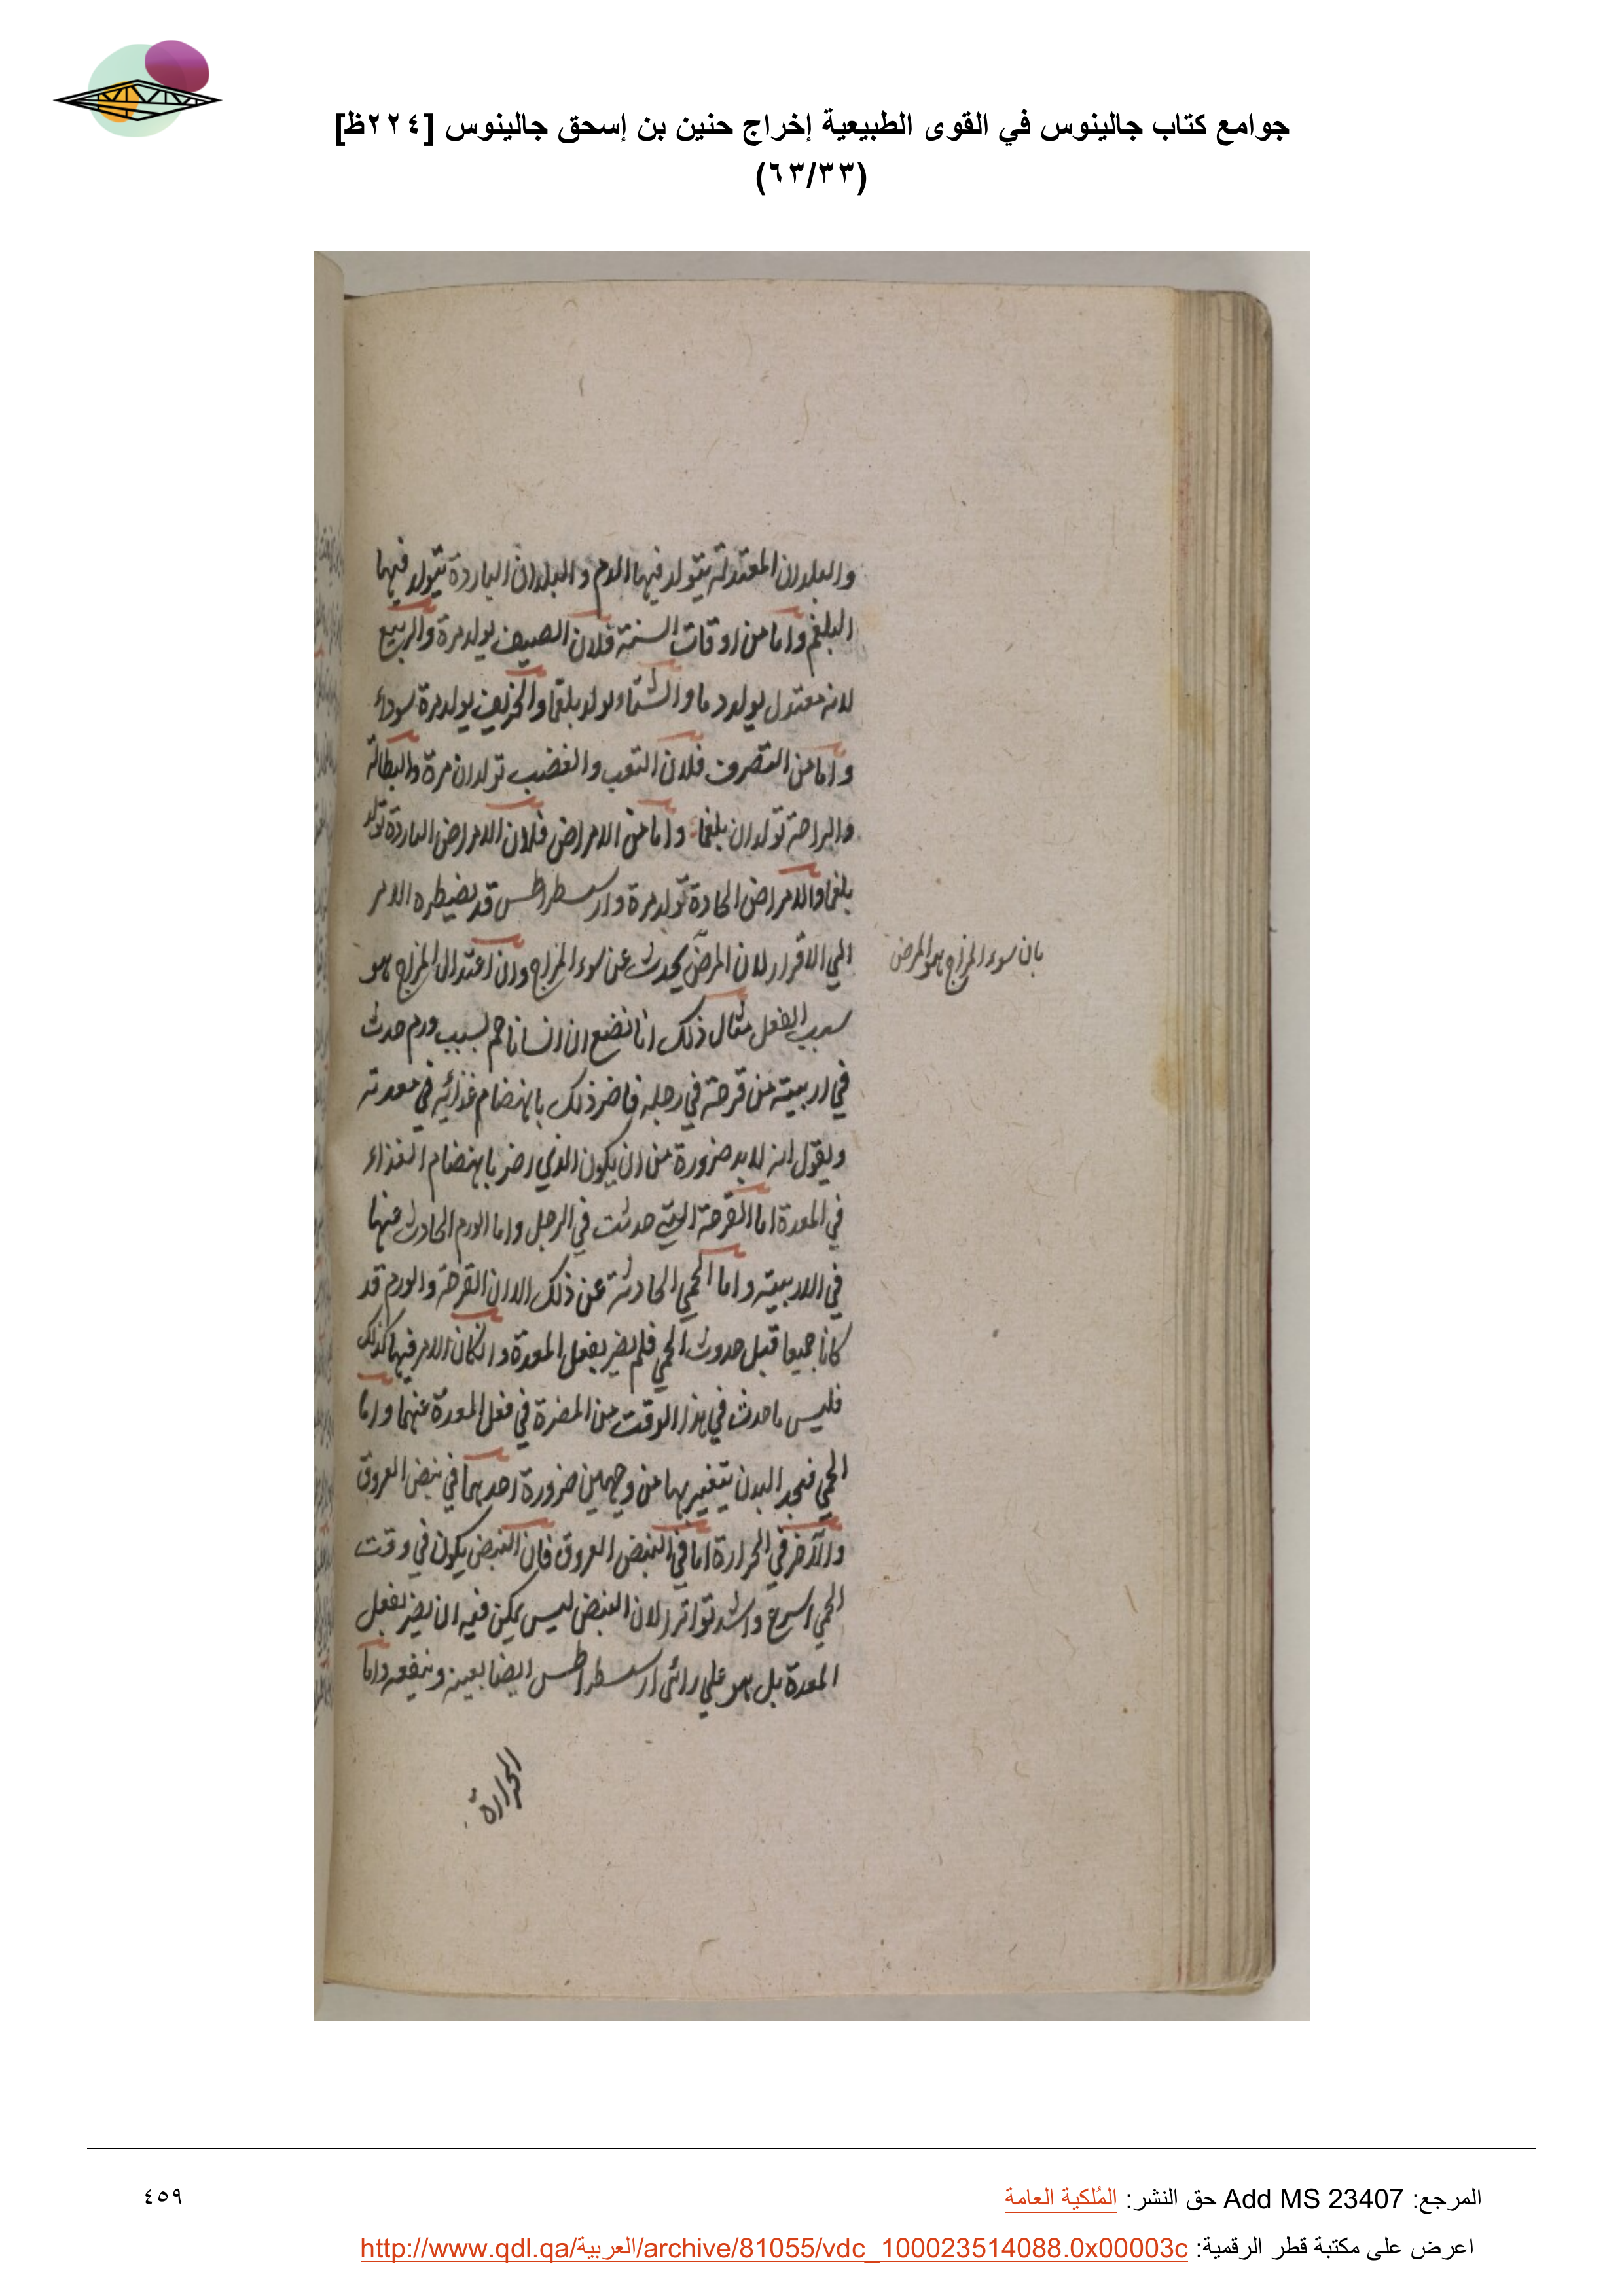 جوامع كتاب جالينوس في القوى الطبيعية إخراج حنين بن إسحق جالينوس [٢٢٤ظ]
(٦٣/٣٣)
والبلدان المعتدلة يتولد فيها الدم والبلدان الباردة يتولد فيها
البلغم واما من اوقات السنة فلان الصيف يولد مرة والربيع
لانه معتدل يولد دما والشتاء يولد بلغما والخريف يولد مرة سوداء
واما من التصرف فلان التعب والغضب تولدان مرة والبطالة
والراحة تولدان بلغما واما من الامراض فلان الامراض الباردة تولد
بلغما والامراض الحادة تولد مرة وارسطراطس قد يضيطره الامر
الي الاقرار لان المرض يحدث عن سوء المزاج وان اعتدال المزاج هو
بان سوء المزاج هو المرض
سبب الفعل مثال ذلك انا نضع ان انسانا حم بسبب ورم حدث
في اربيته من قرحة في رجله فاضر ذلك بانهضام غذائه في معدته
ويقول انه لابد ضرورة من ان يكون الذي اضر بانهضام الغذاء
في المعدة اما القرحة التي حدثت في الرجل واما الورم الحادث عنها
في الاربيته واما الحمي الحادثة عن ذلك الا ان القرحة والورم قد
كانا جميعا قبل حدوث الحمي فلم يضر بفعل المعدة وانكان الامر فيها كذلك
فليس ما حدث في هذا الوقت من المضرة في فعل المعدة عنهما واما
الحمي فنجد البدن يتغير بها من وجهين ضرورة احدهما في نبض العروق
والآخر في الحرارة اما في النبض العروق فان النبض يكون في وقت
الحمي اسرع واشد تواترا لان النبض ليس يمكن فيه ان يضر بفعل
المعدة بل هو علي رائ ارسطراطس ايضا يعينه وينفعه واما
الحرارة
المرجع: Add MS 23407 حق النشر: المُلكية العامة
٤٥٩
اعرض على مكتبة قطر الرقمية: http://www.qdl.qa/العربية/archive/81055/vdc_100023514088.0x00003c